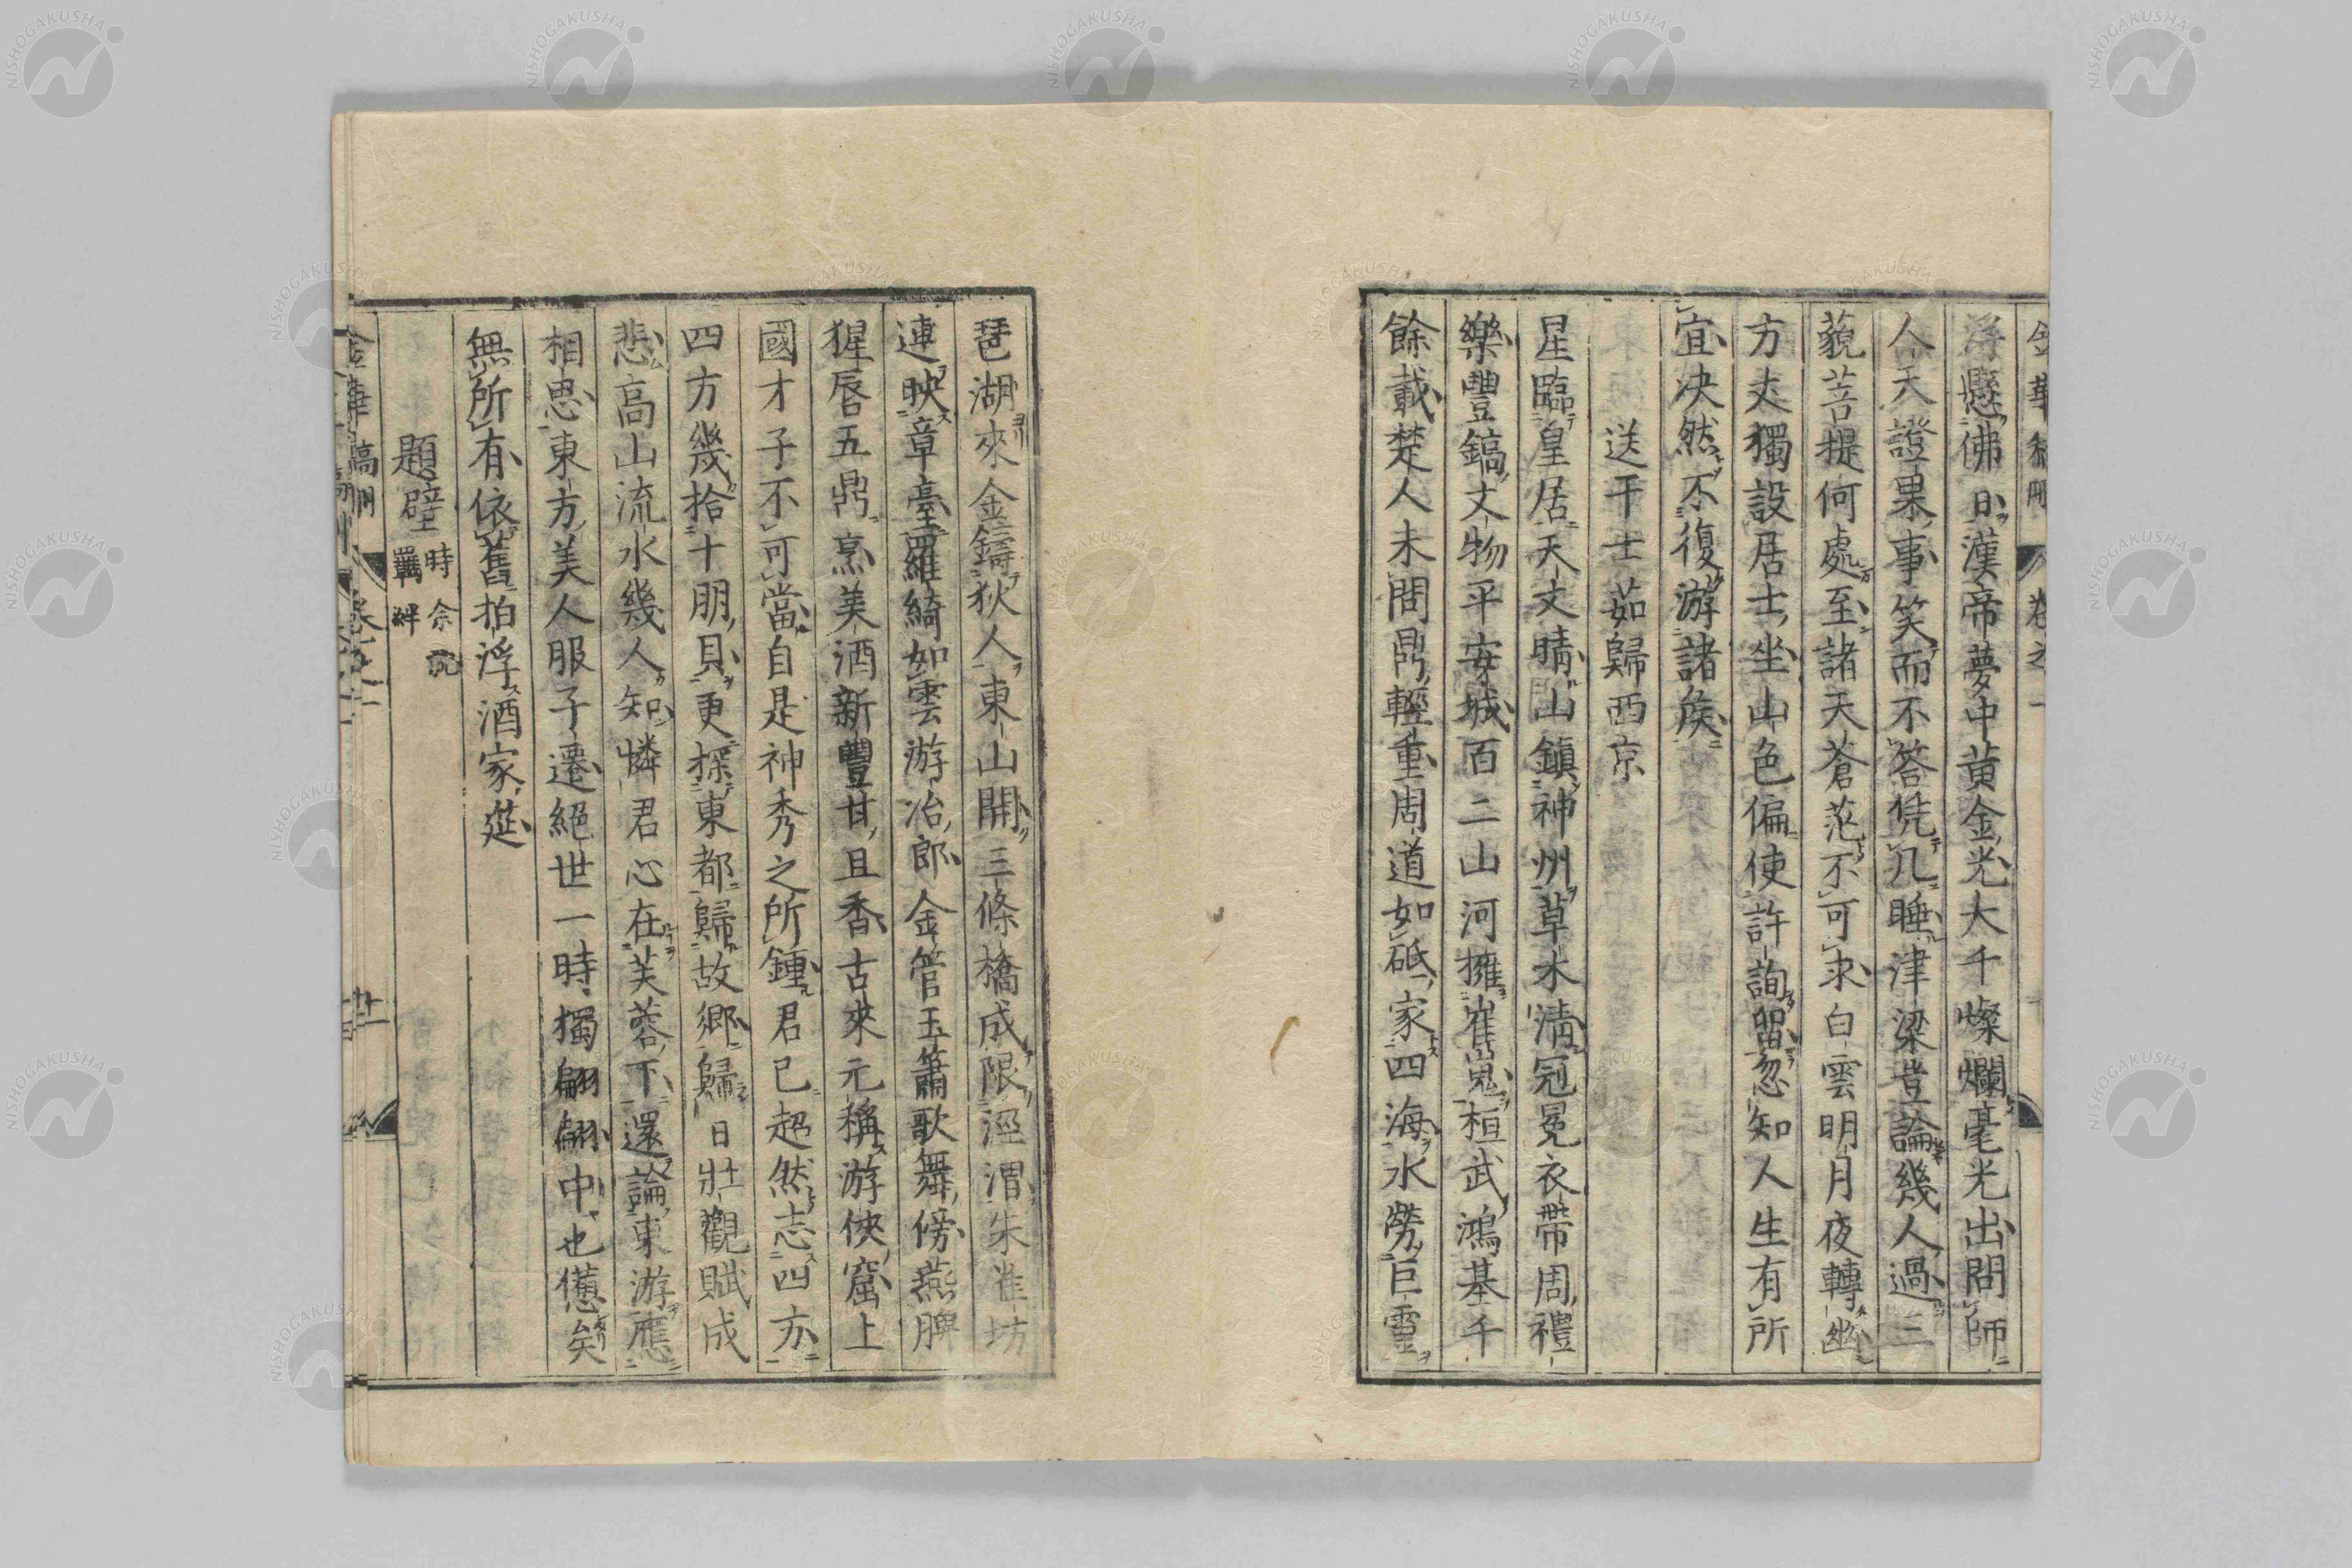 浮懸佛日漢帝夢中黄金光大千燦爛毫光出問師
人天證果事笑而不答凭几睡津梁豈論幾人過三
藐菩提何處至諸天蒼茫不可求白雲明月夜轉幽
方丈獨設居士坐山色偏使許詢留忽知人生有所
宜决然不復游諸侯
送干士茹歸西京
星臨皇居天文晴山鎮神州草木清冠冕衣帶周禮
樂豐鎬文物平安城百二山河擁崔嵬桓武鴻基千
餘載楚人未問鼎輕重周道如砥家四海水勞巨靈
琶湖來金鑄狄人東山開三條橋成限涇渭朱雀坊
連映章臺羅綺如雲游冶郎金管玉簫歌舞傍燕脾
猩唇五鼎烹美酒新豐甘且香古來元稱游俠窟上
國才子不可當自是神秀之所鍾君已超然志四方
四方幾拾十朋貝更探東都歸故郷歸日壯觀賦成
悲高山流水幾人知憐君心在芙蓉下還論東游應
相思東方美人服子遷絕世一時獨翩翩中也憊矣
無所有依舊拍浮酒家筵
題壁 時余説
羈絆
金華稿刪 卷之一